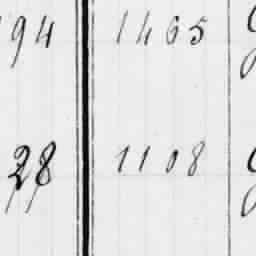 94 1465
28 1108